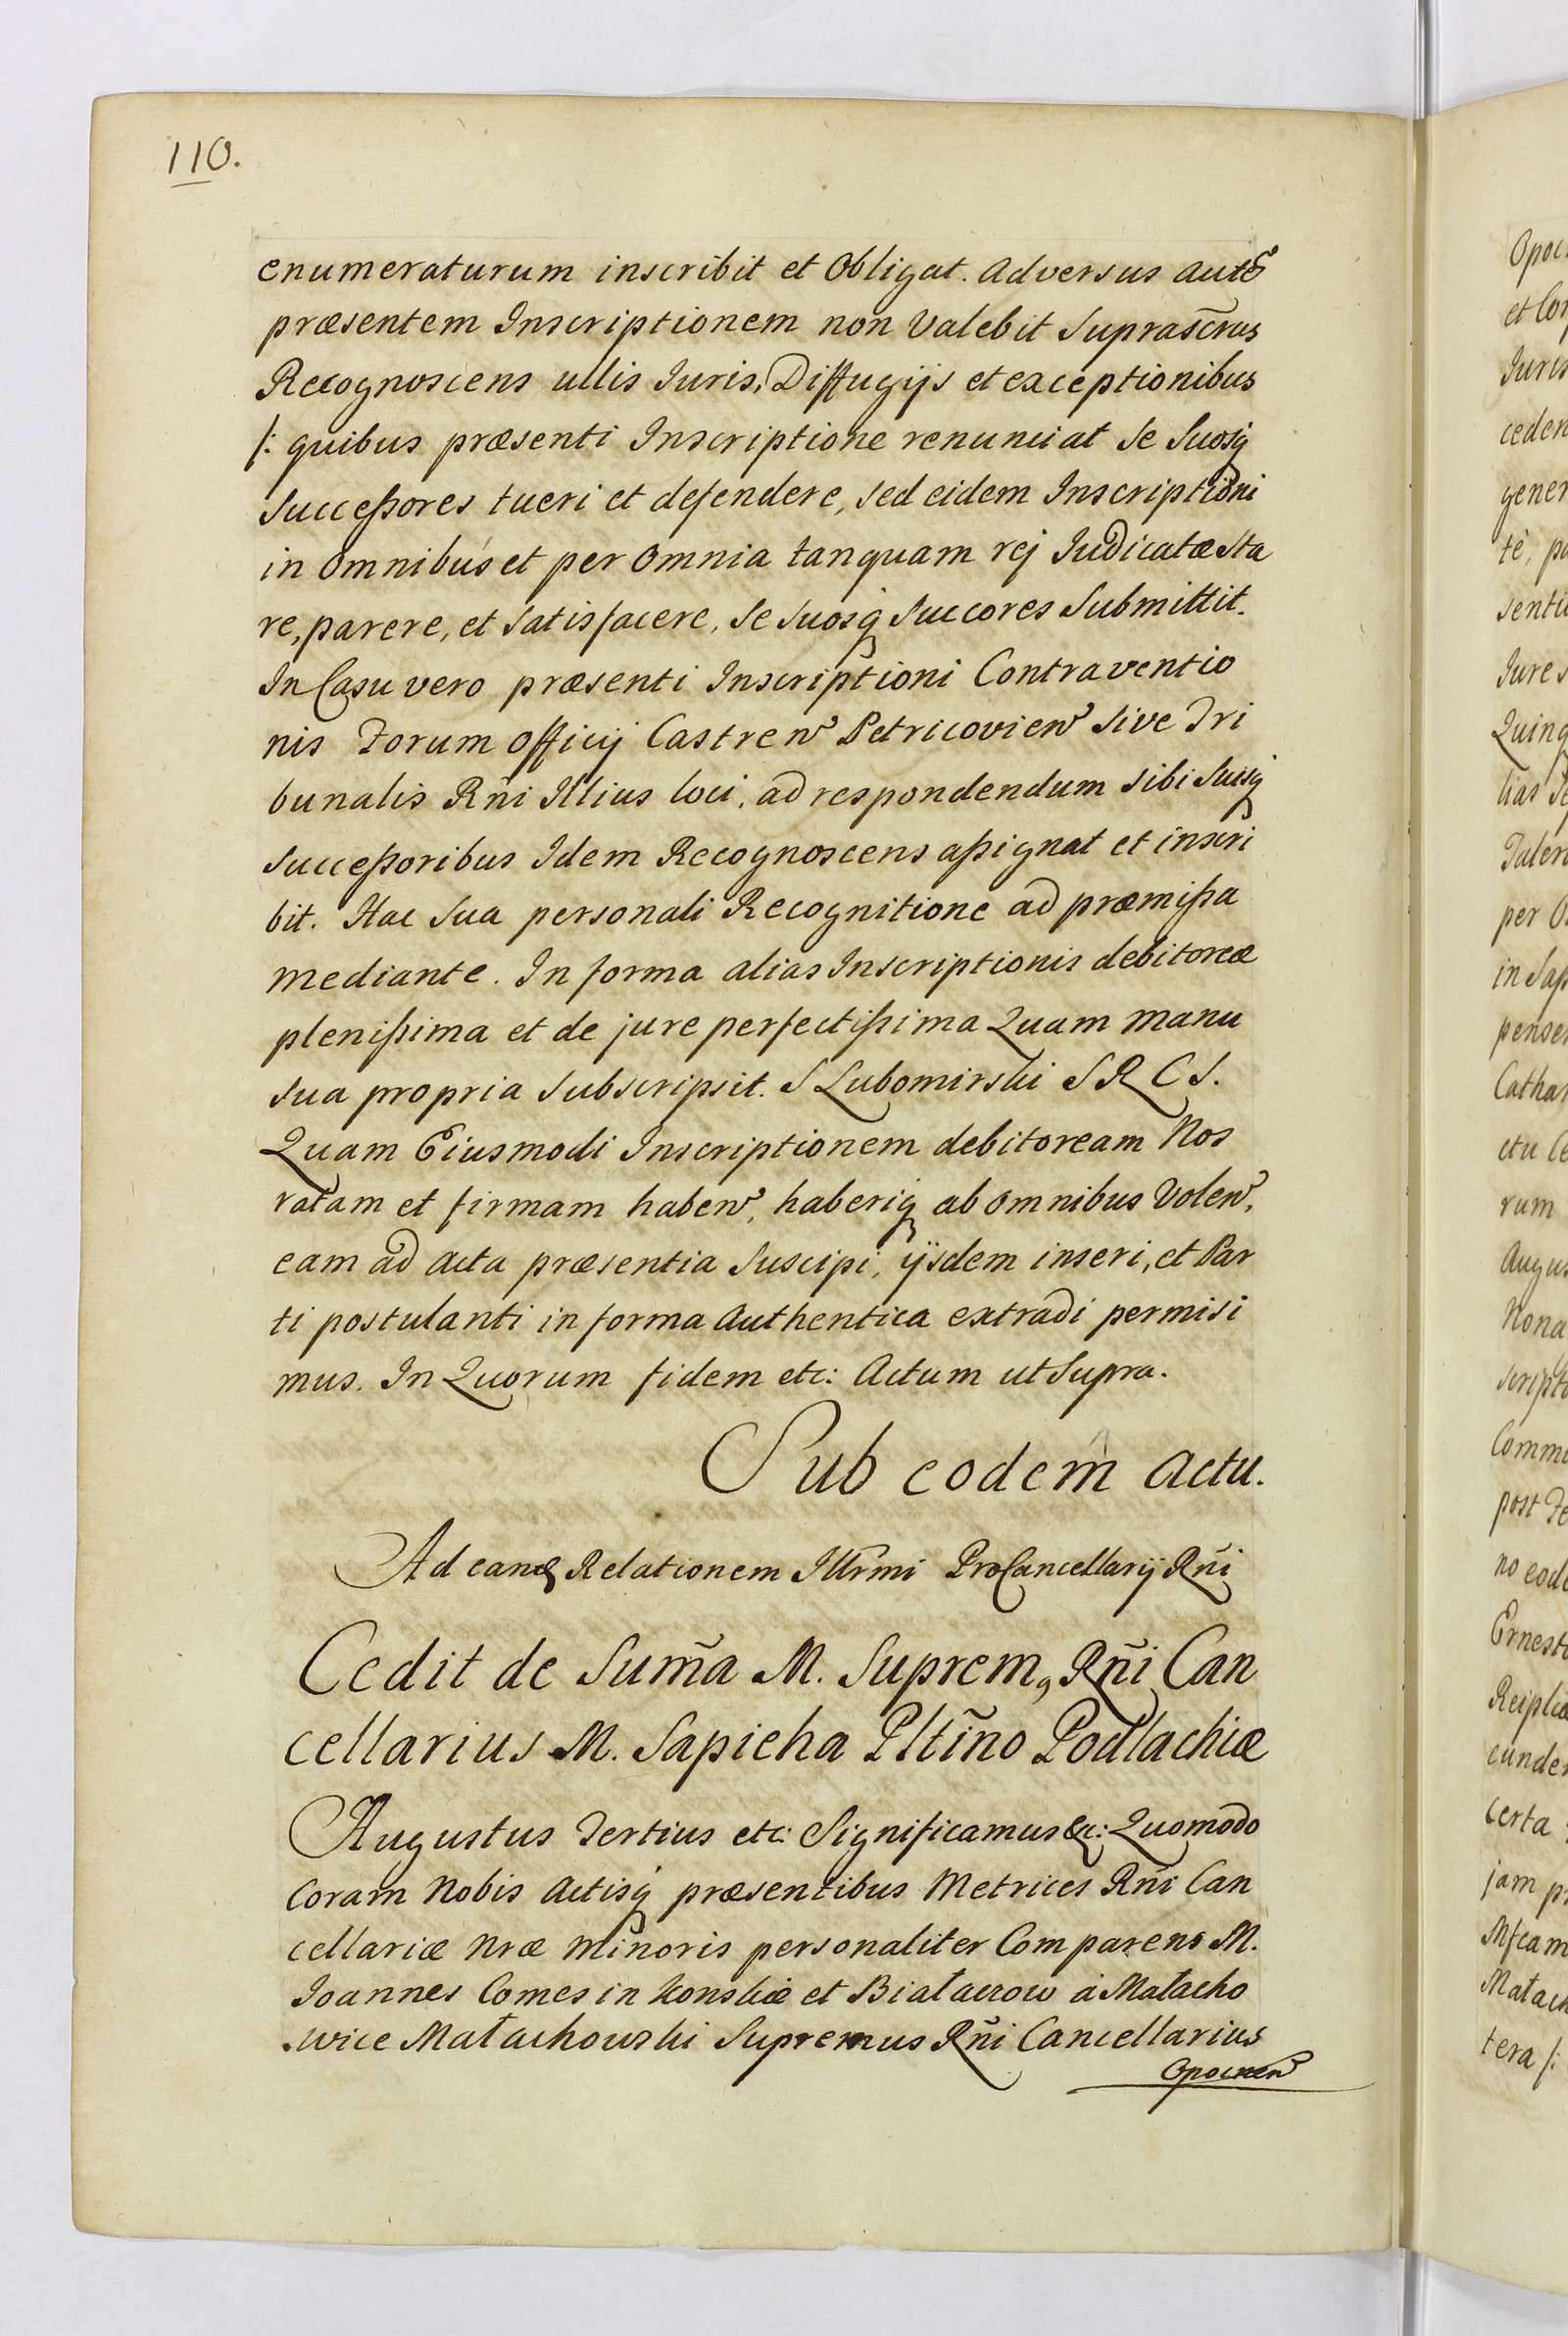 110.
enumeraturum inscribit et Obligat. Adversus autē
præsentem Inscriptionem non Valebit Suprascr̃us
Recognoscens ullis Iuris, Diffugijs et exceptionibus
/: quibus præsenti Inscriptione renunciat Se Suosq
Successores tueri et defendere, sed eidem Inscriptioni
in omnibus et per omnia tanquam rej Iudicatæ sta
re, parere, et satisfacere, se suosq Succores Submittit.
In Casu vero præsenti Inscriptioni Contraventio
nis Forum Officij Castren Petricovien Sive Tri
bunalis Rñi Illius loci, ad respondendum sibi Suisq
Successoribus Idem Recognoscens assignat et inscri
bit. Hac Sua personali Recognitione ad præmissa
mediante. In forma alias Inscriptionis debitoreæ
plenissima et de jure perfectissima Quam manu
sua propria Subscripsit. S Lubomirski S R C S.
Quam Eiusmodi Inscriptionem debitoream Nos
ratam et firmam haben, haberiq ab omnibus Volen,
eam ad acta præsentia Suscipi, ijsdem inseri, et Par
ti postulanti in forma Authentica extradi permisi
mus. In Quorum fidem etc: Actum ut Supra.
Sub eodem actu.
Ad eand Relationem Illrmi ProCancellarij Rñi
Cedit de Sum̃a M. Suprem, Rñi Can
cellarius M. Sapieha Pltiño Podlachiæ
Augustus Tertius etc: Significamus &c: Quomodo
Coram Nobis Actisq præsentibus Metrices Rñi Can
cellariæ Nræ Minoris personaliter Comparens M.
Ioannes Comes in Konskie et Białaczow à Małacho
wice Małachowski Supremus Rñi Cancellarius
Opocnen